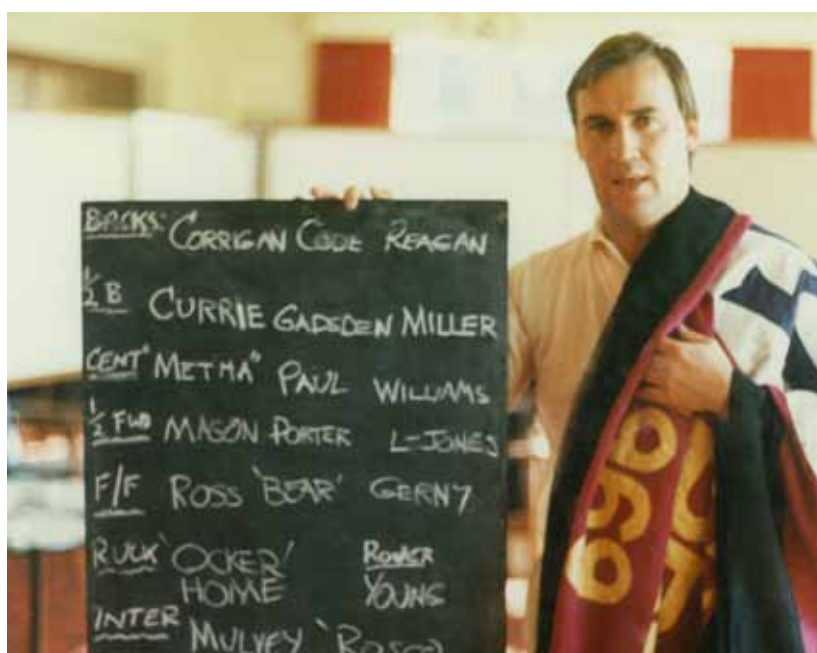 BACKS: CORRIGAN CODE REAGAN
½ B CURRIE GADSDEN MILLER
CENT "METHA" PAUL WILLIAMS
½ FWD MASON PORTER L-JONES
F/F ROSS 'BEAR' GERNY
RUCK 'OCKER' ROVER
HOME YOUNG
INTER MULVEY 'ROSCO